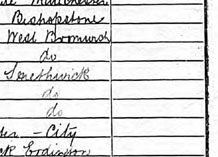 Manchester
Bishopstone
West Bromwich
do
Smethwick
do
do
- City